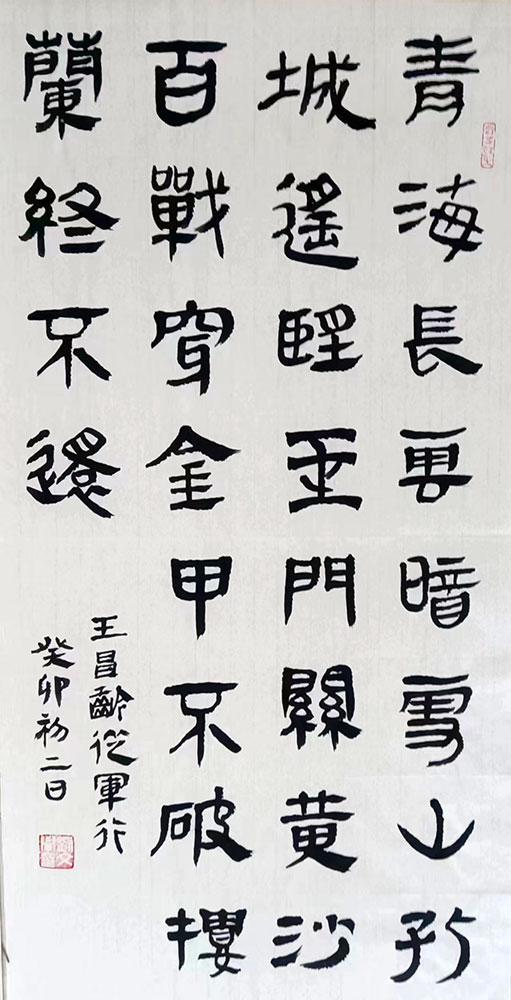 青海長雲暗雪山孤
城遙望玉門關黄沙
百戰穿金甲不破樓
蘭終不還
王昌齡從軍行
癸卯初二日